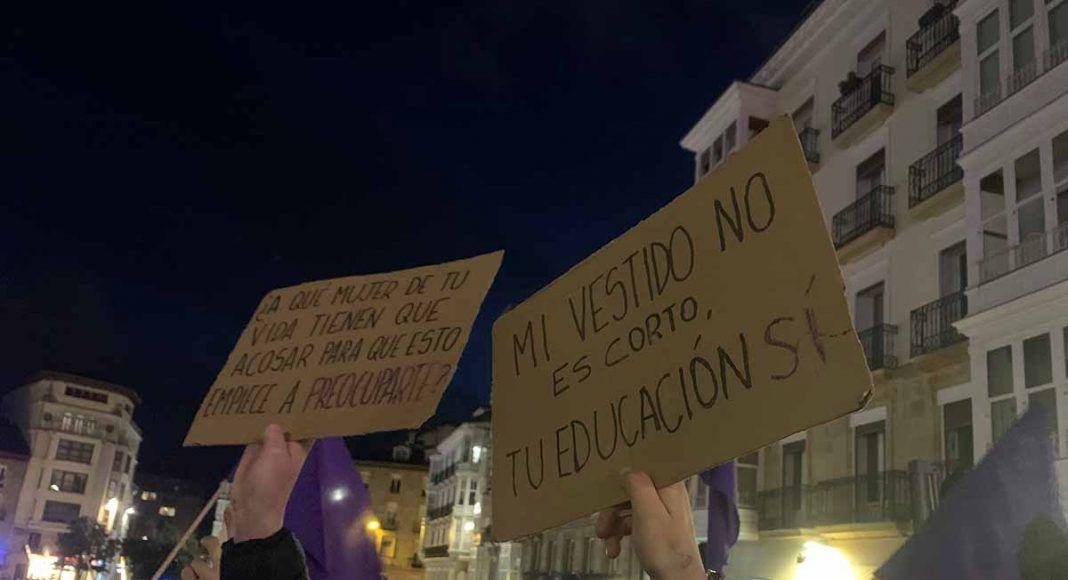 ¿A QUÉ MUJER DE TU
VIDA TIENEN QUE
ACOSAR PARA QUE ESTO
EMPIECE A PREOCUPARTE?
MI VESTIDO NO
ES CORTO,
TU EDUCACIÓN SÍ